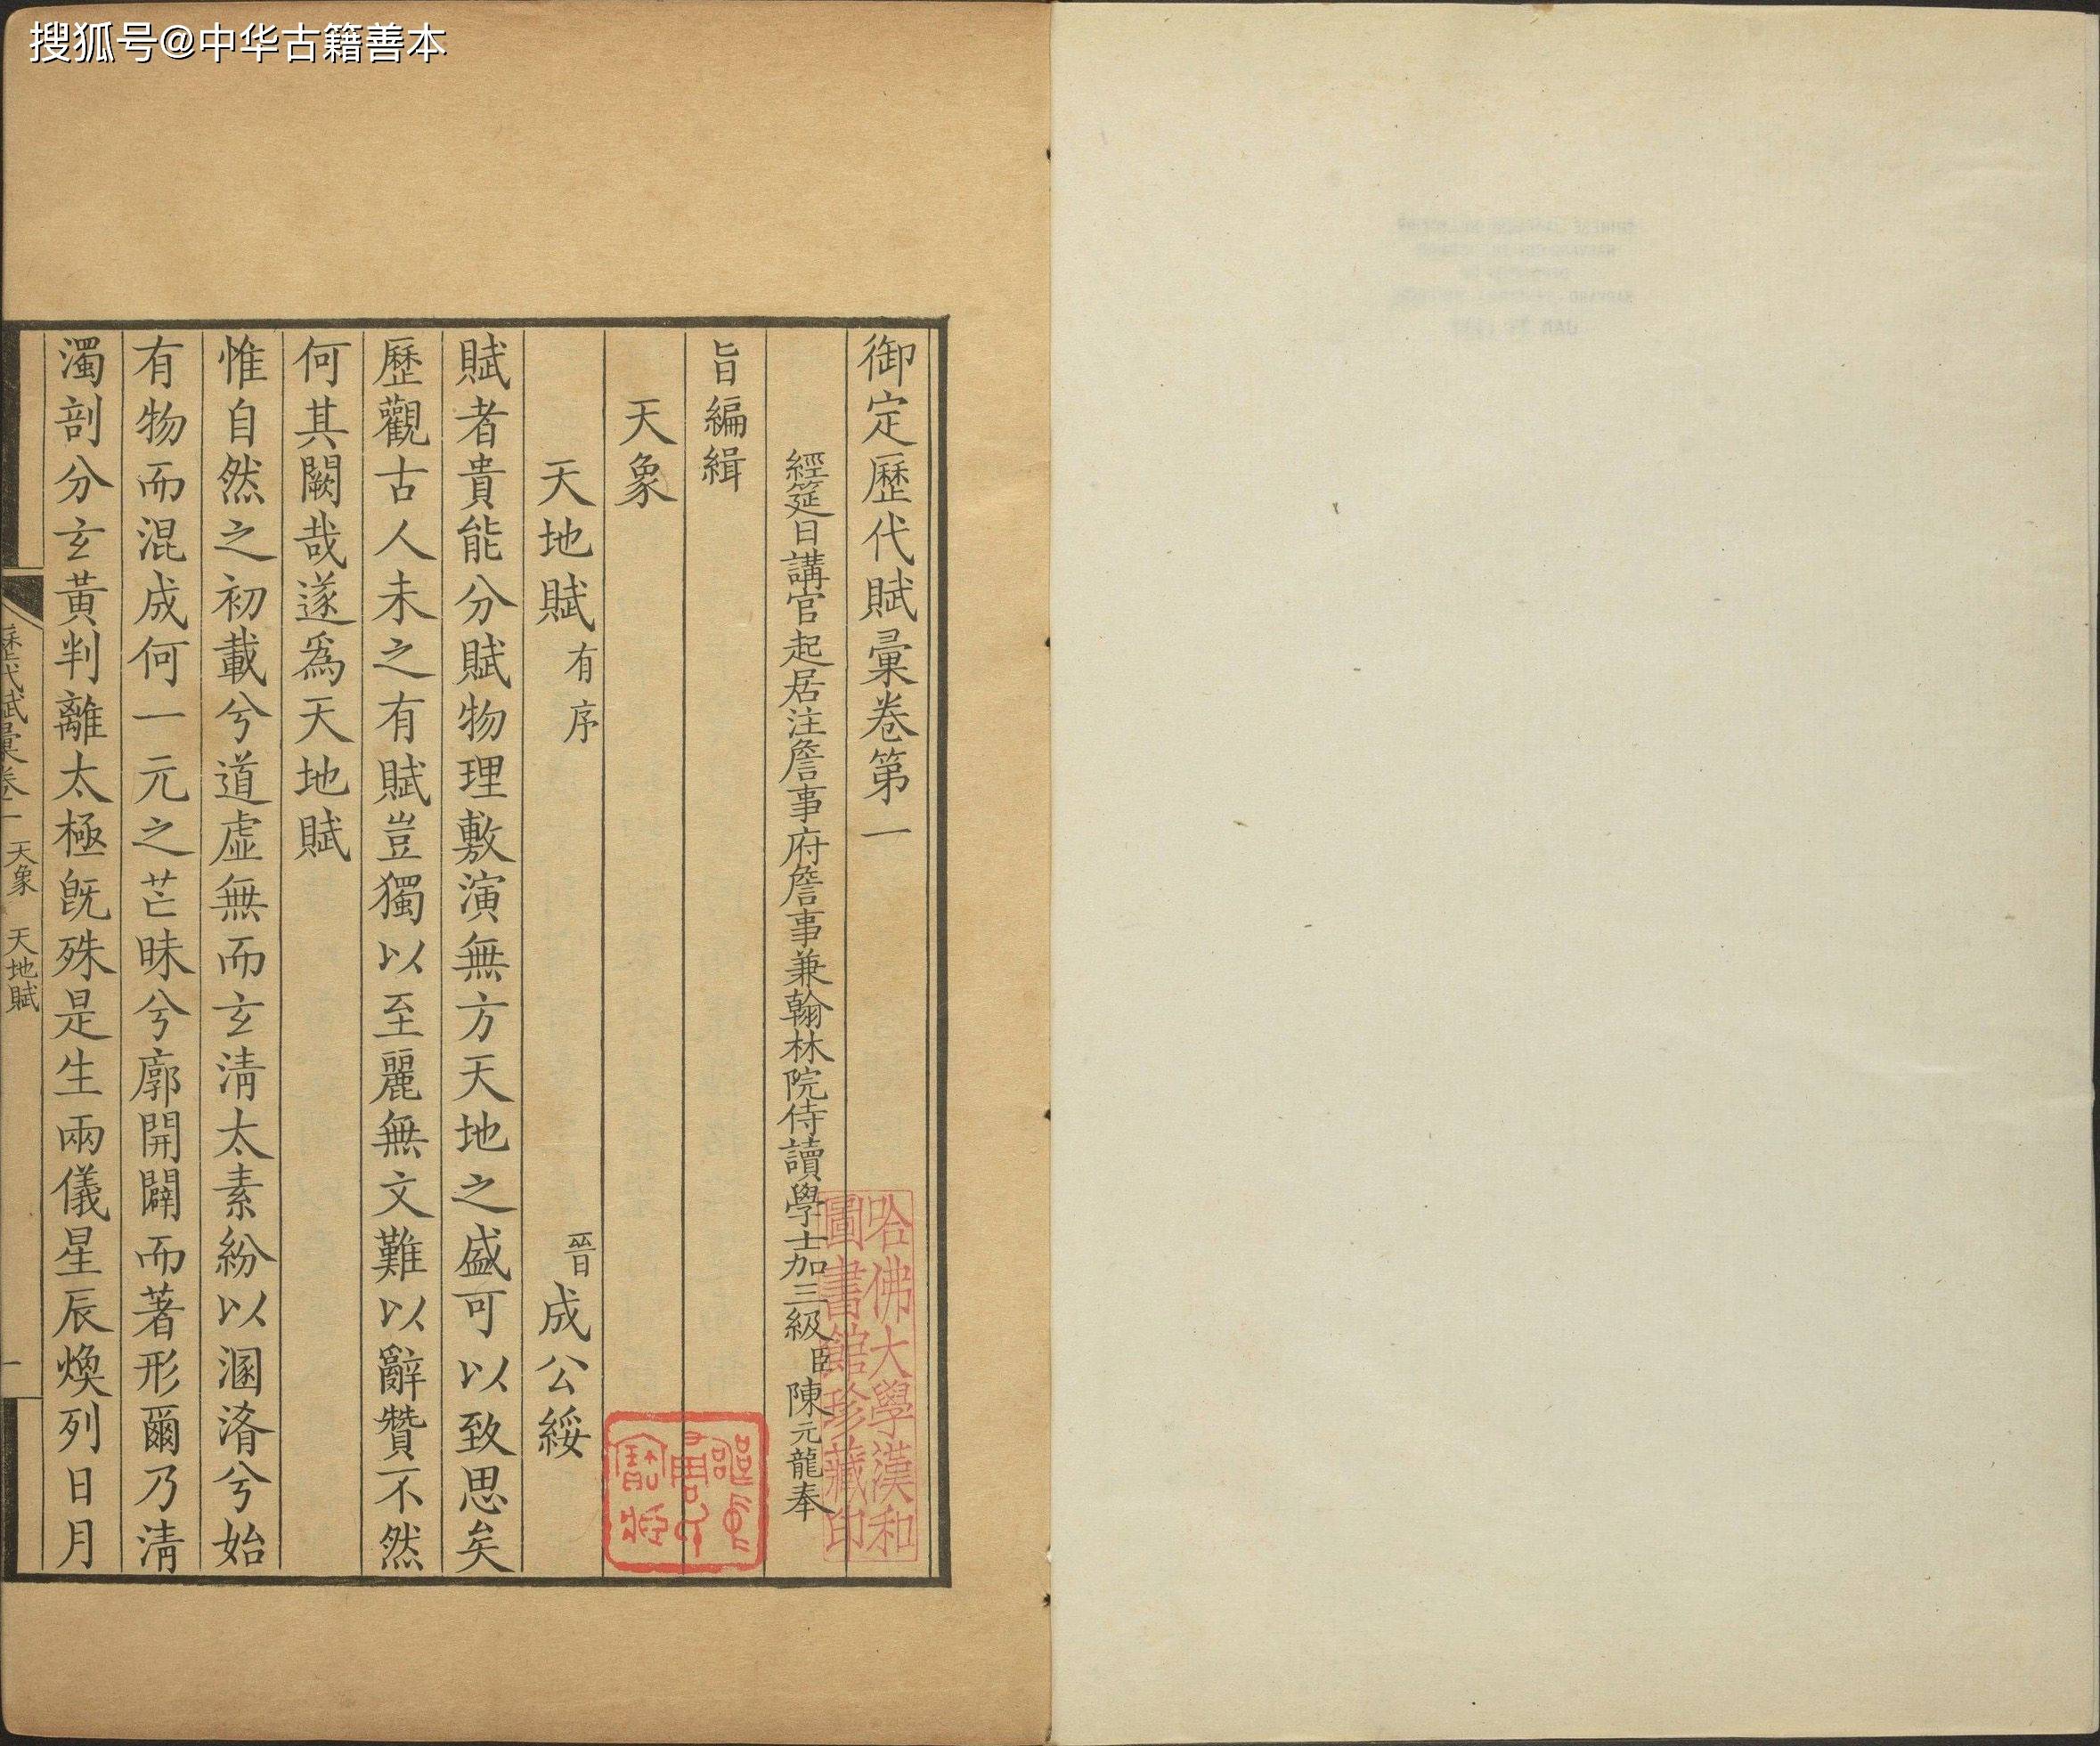 搜狐号@中华古籍善本
御定歷代賦彙卷第一
經筵日講官起居注詹事府詹事兼翰林院侍讀學士加三級臣陳元龍奉
旨編緝
天象
天地賦有序 晉成公綏
賦者貴能分賦物理敷演無方天地之盛可以致思矣
歷觀古人未之有賦豈獨以至麗無文難以辭贊不然
何其闕哉遂爲天地賦
惟自然之初載兮道虛無而玄淸太素紛以溷淆兮始
有物而混成何一元之芒昧兮廓開闢而著形爾乃淸
濁剖分玄黃判離太極旣殊是生兩儀星辰煥列日月
歷代賦彙卷一 天象 天地賦 一
哈佛大學漢和
圖書館珍藏印